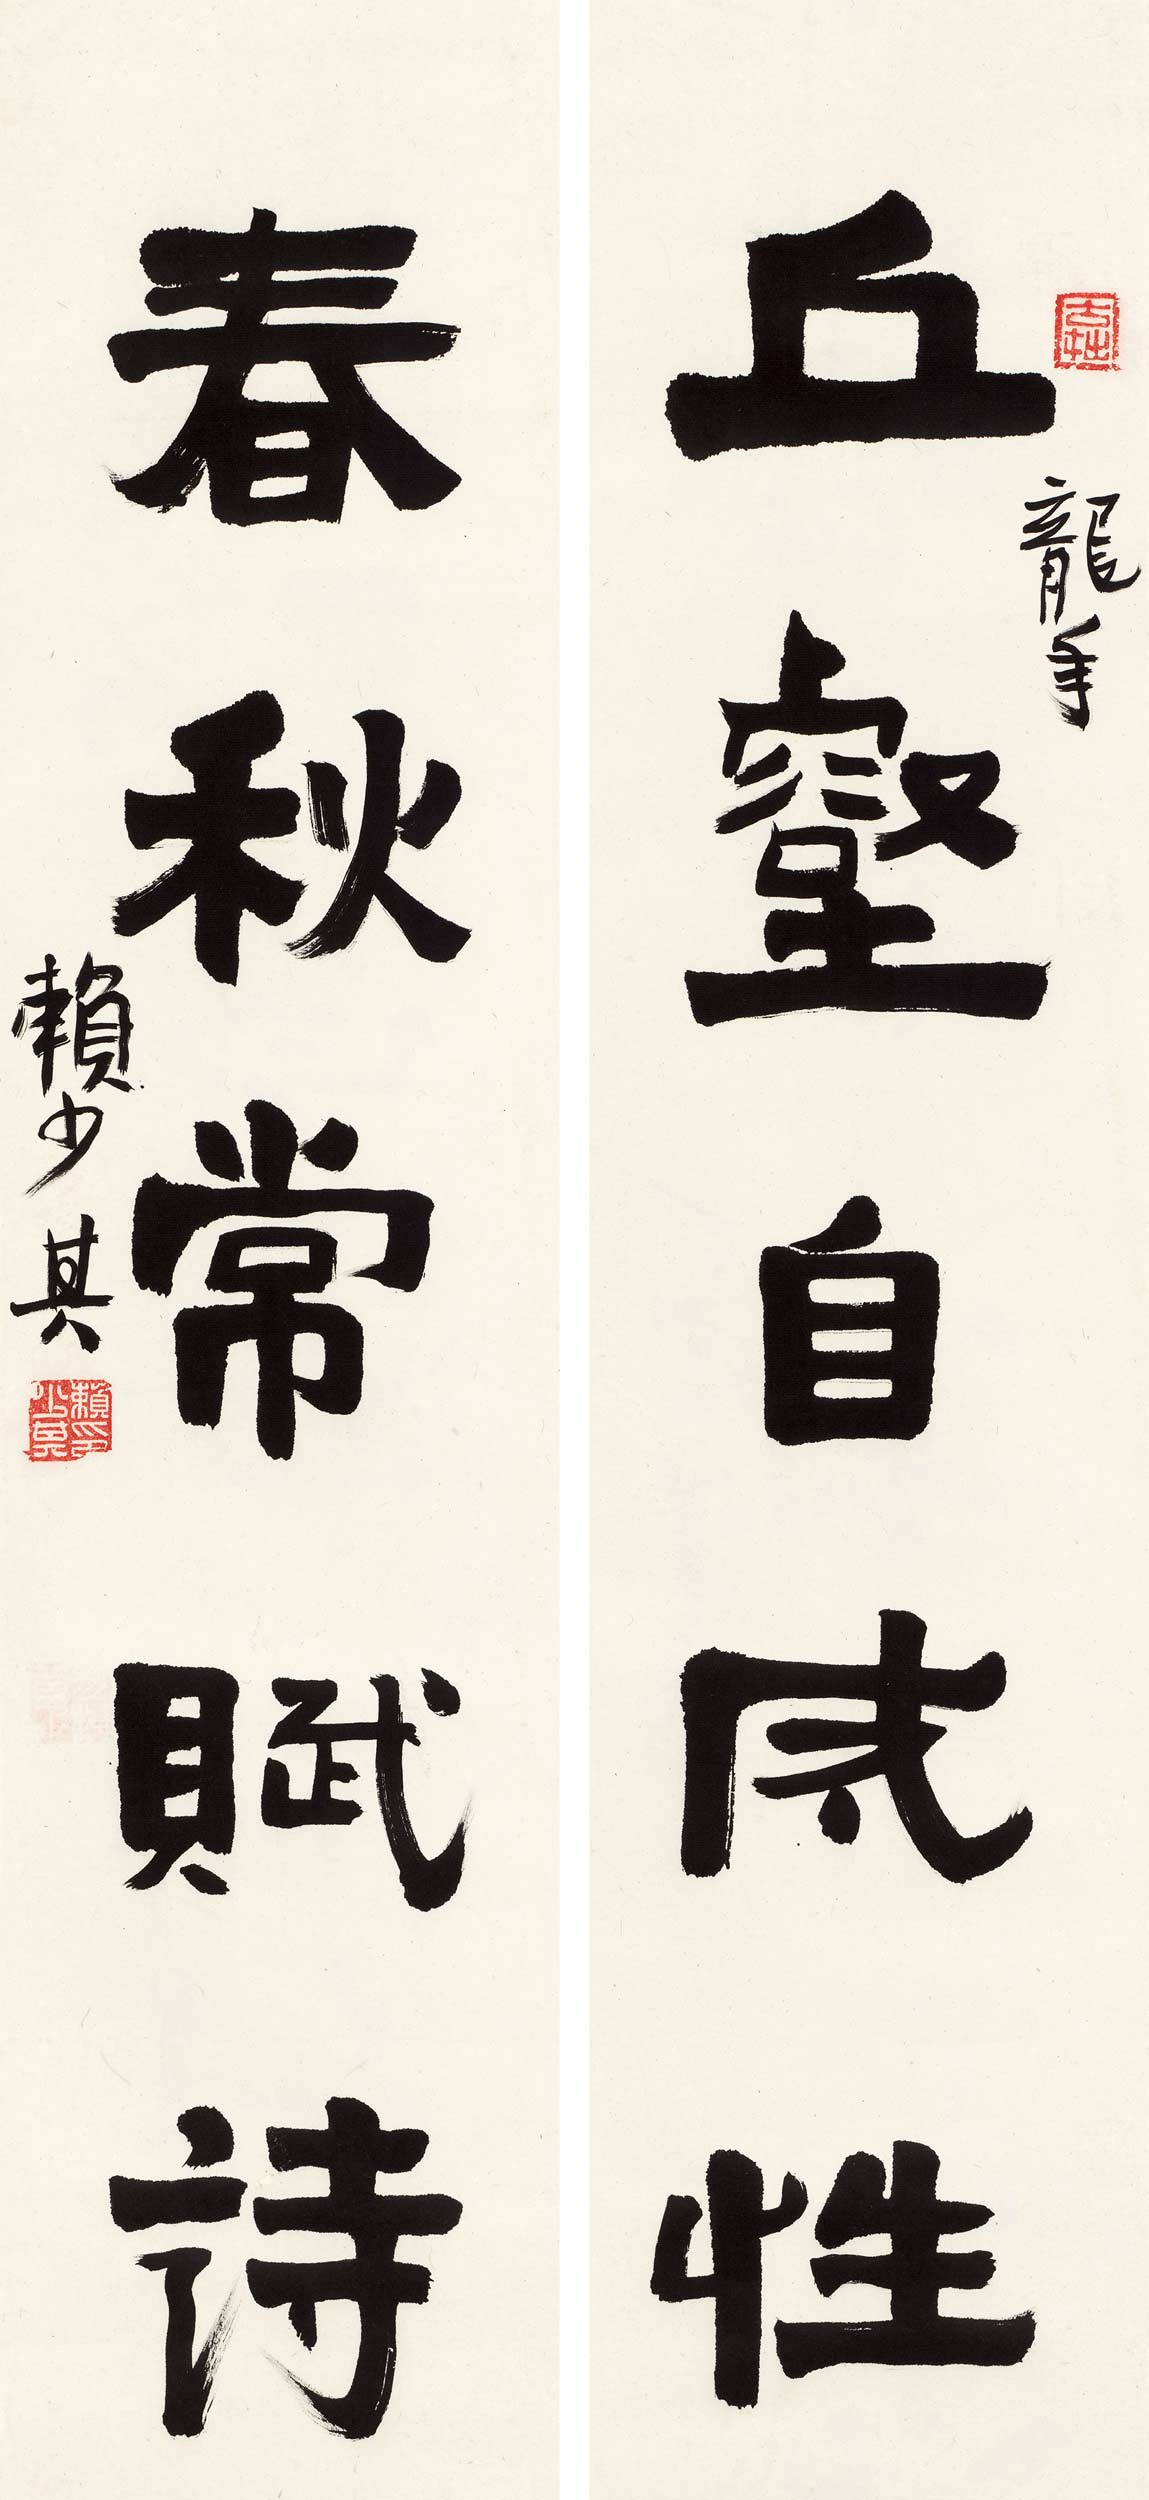 丘壑自成性
龍年
春秋常賦詩
賴少其
賴少其印